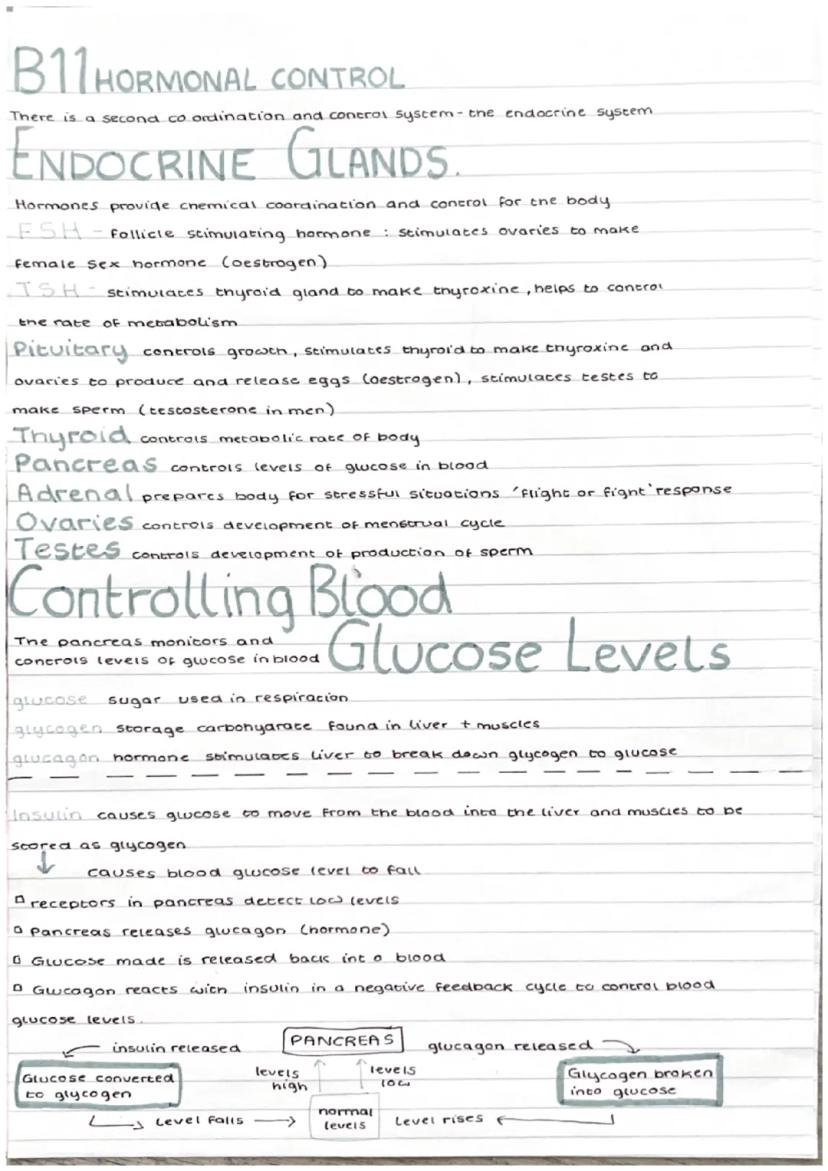 B11 HORMONAL CONTROL
There is a second co ordination and control system - the endocrine system
ENDOCRINE GLANDS.
Hormones provide chemical coordination and control for the body
FSH - follicle stimulating hormone : stimulates ovaries to make
female sex hormone (oestrogen)
TSH - stimulates thyroid gland to make thyroxine, helps to control
the rate of metabolism
Pituitary controls growth, stimulates thyroid to make thyroxine and
ovaries to produce and release eggs (oestrogen), stimulates testes to
make sperm (testosterone in men)
Thyroid controls metabolic rate of body
Pancreas controls levels of glucose in blood
Adrenal prepares body for stressful situations 'flight or fight' response
Ovaries controls development of menstrual cycle
Testes controls development of production of sperm
Controlling Blood
Glucose Levels
The pancreas monitors and
controls levels of glucose in blood
glucose sugar used in respiration
glycogen storage carbohydrate found in liver + muscles
glucagon hormone stimulates liver to break down glycogen to glucose
Insulin causes glucose to move from the blood into the liver and muscles to be
stored as glycogen
↓ causes blood glucose level to fall
▫ receptors in pancreas detect low levels
▫ Pancreas releases glucagon (hormone)
▫ Glucose made is released back into blood
▫ Glucagon reacts with insulin in a negative feedback cycle to control blood
glucose levels.
insulin released
PANCREAS
glucagon released
Glucose converted
to glycogen
levels
high
levels
low
Glycogen broken
into glucose
Level falls
normal
levels
Level rises